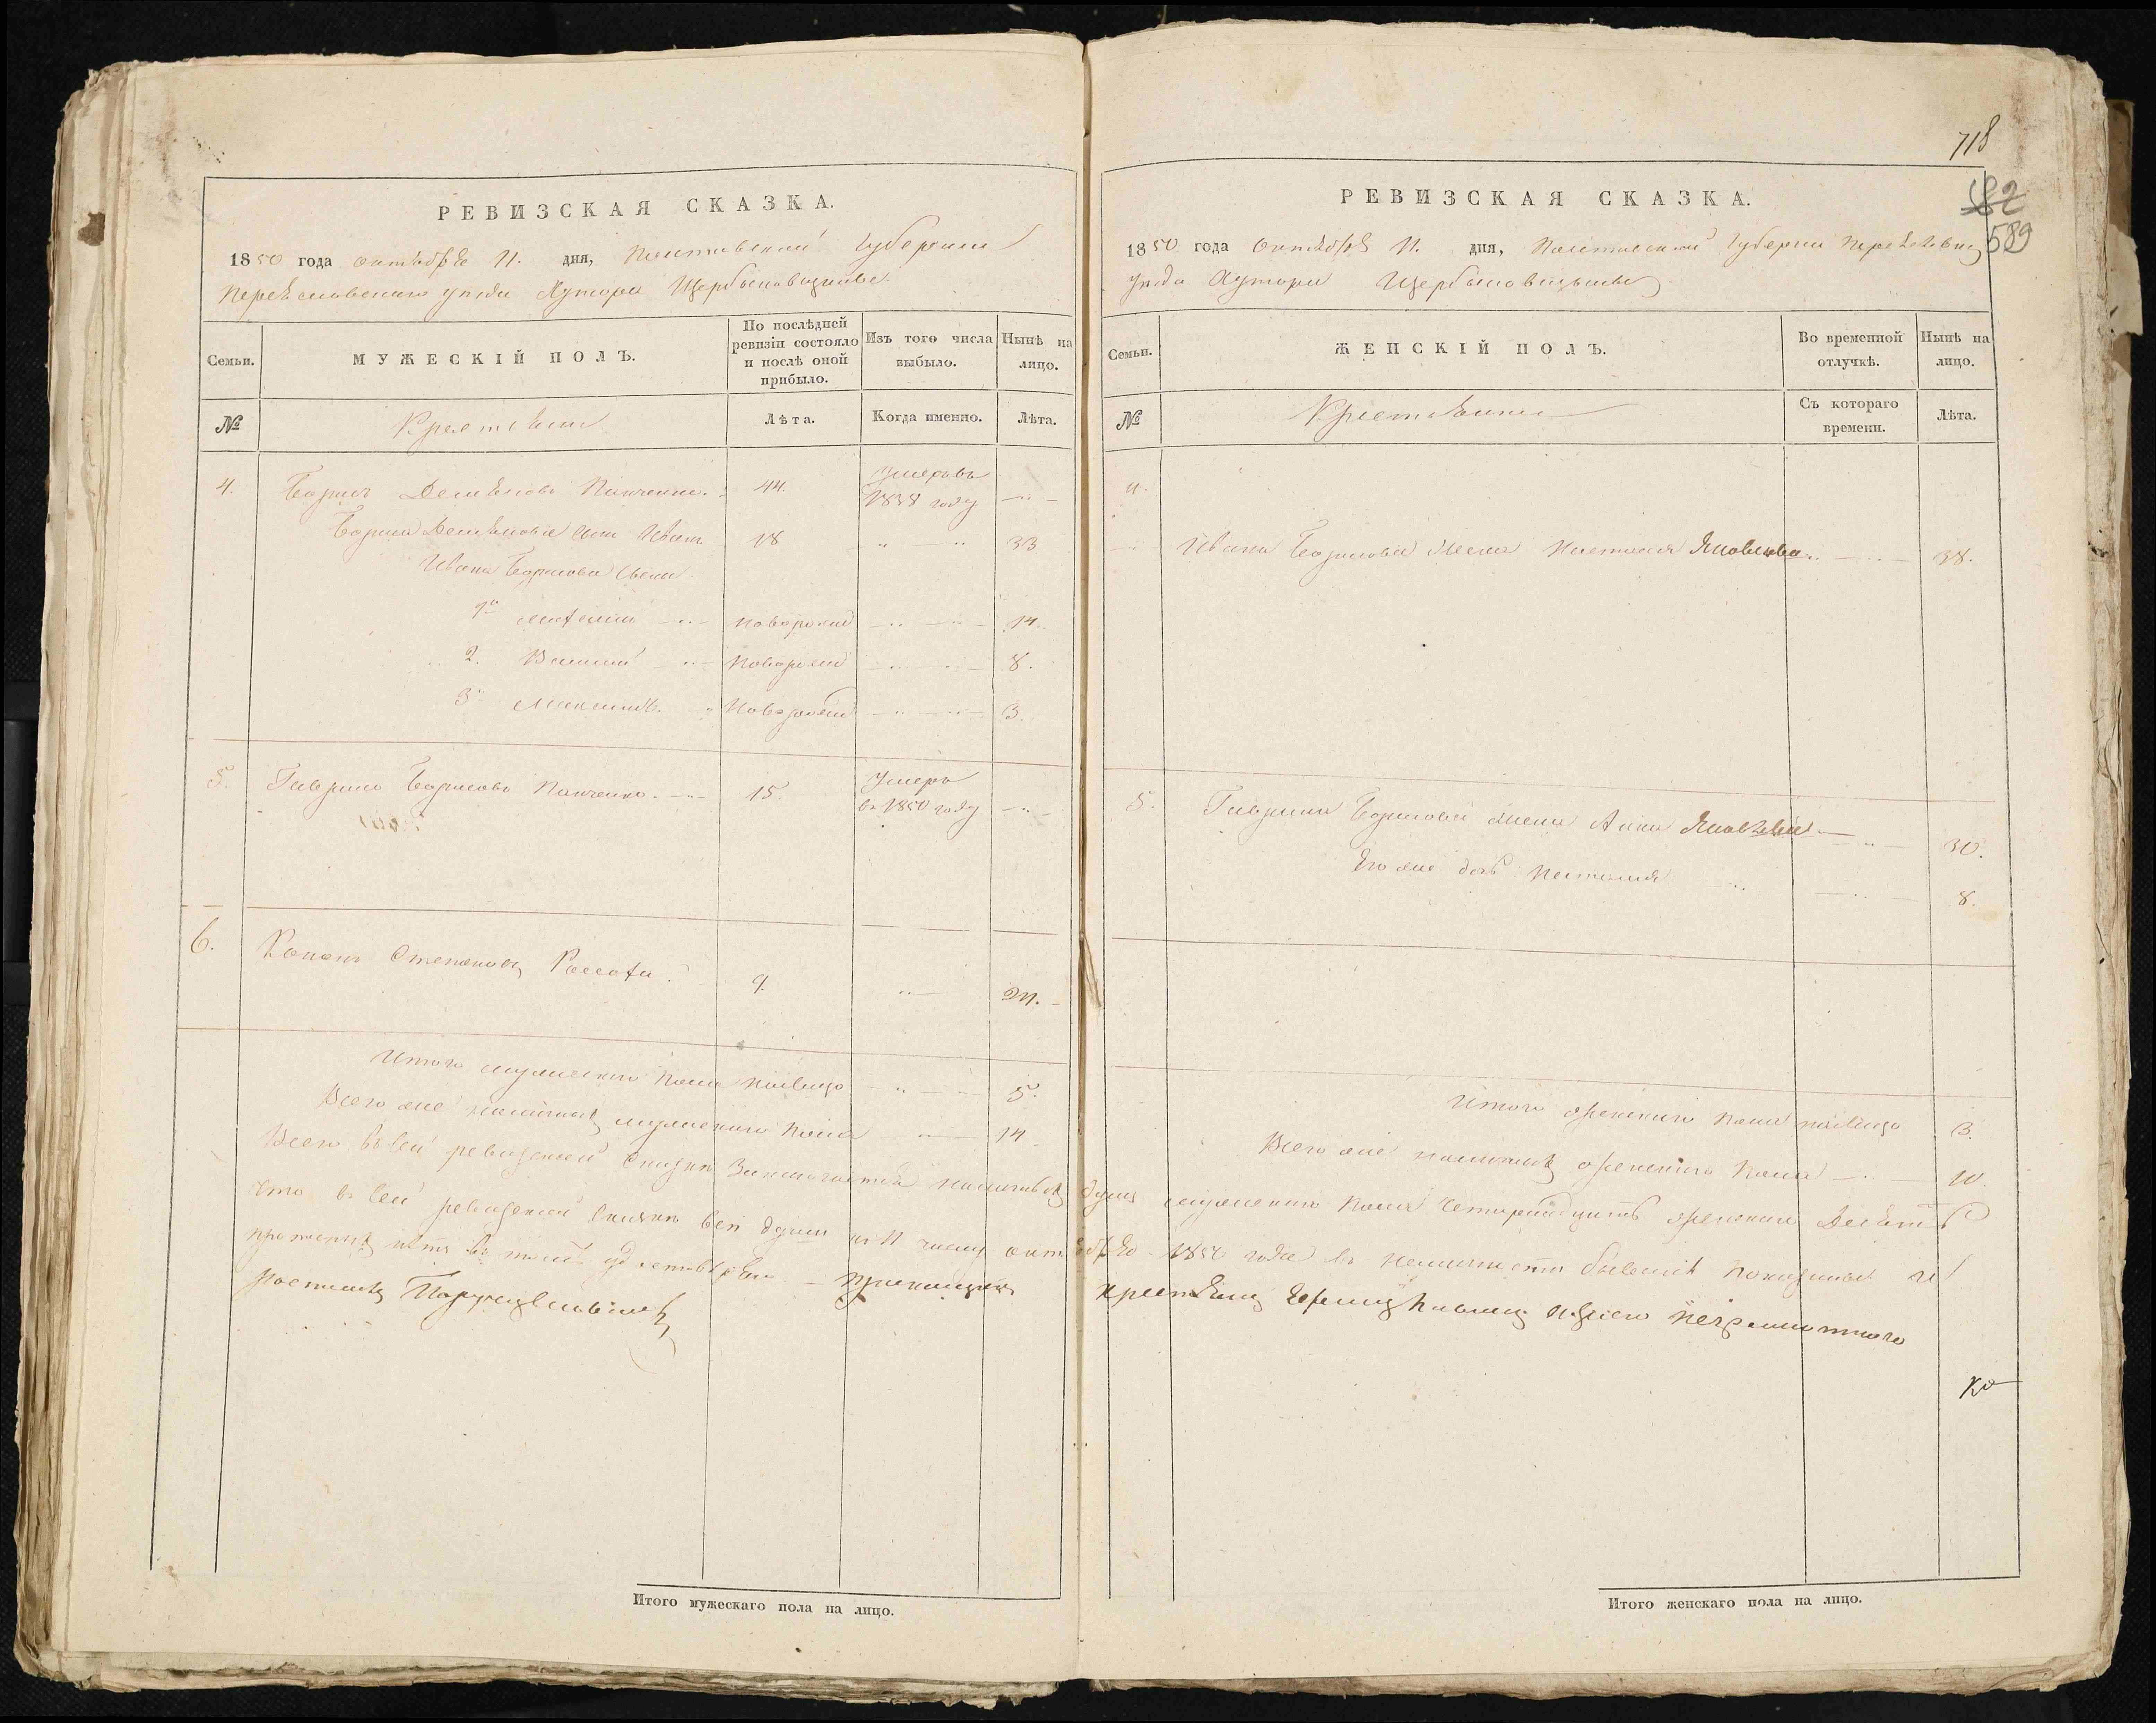 718
РЕВИЗСКАЯ СКАЗКА.
1850 года октября 11. дня, Полтавской Губернии
Переяславского уезда Хутора Щербиновщины
Семьи. МУЖЕСКІЙ ПОЛЪ. По послѣдней ревизіи состояло и послѣ оной прибыло. Изъ того числа выбыло. Нынѣ на лицо.
№ Крестьяне Лѣта. Когда именно. Лѣта.
4. Борисъ Демьяновъ Панченко. 44. Умеръ въ 1838 году
Бориса Демьянова сынъ Иванъ 18 33
Ивана Борисова сыны
1й новорожд 14.
2. Василий новорожд 8.
3й Максимъ. новорожд 3.
5. Гаврило Борисовъ Панченко. 15. Умеръ въ 1850 году
6. Кононъ Степановъ 9. 24.
Итого мужеска пола налицо 5.
Всего же наличныхъ мужеска пола 14
Итого мужескаго пола на лицо.
РЕВИЗСКАЯ СКАЗКА.
82
589
1850 года октября 11. дня, Полтавской Губернии Переяславск
уезда Хутора Щербиновщины
Семьи. ЖЕНСКІЙ ПОЛЪ. Во временной отлучкѣ. Нынѣ на лицо.
№ Крестьяне Съ котораго времени. Лѣта.
4.
Ивана Борисова жена Наталия Яковлева 38.
5. Гаврила Борисова жена Анна Яковлева 30.
Его же дочь Наталия 8.
Итого женска пола налицо 3.
Всего же наличныхъ женска пола 10.
Всего въ сей ревизской сказке заключается наличныхъ душъ мужеска пола четырнадцать женска десять
что в сей ревизской сказке все души к 11 числу октября 1850 года в наличности бывшия показаны и
пропущенныхъ нетъ въ томъ удостоверяю приказчикъ крестьянинъ неграмотного
Ко
Итого женскаго пола на лицо.